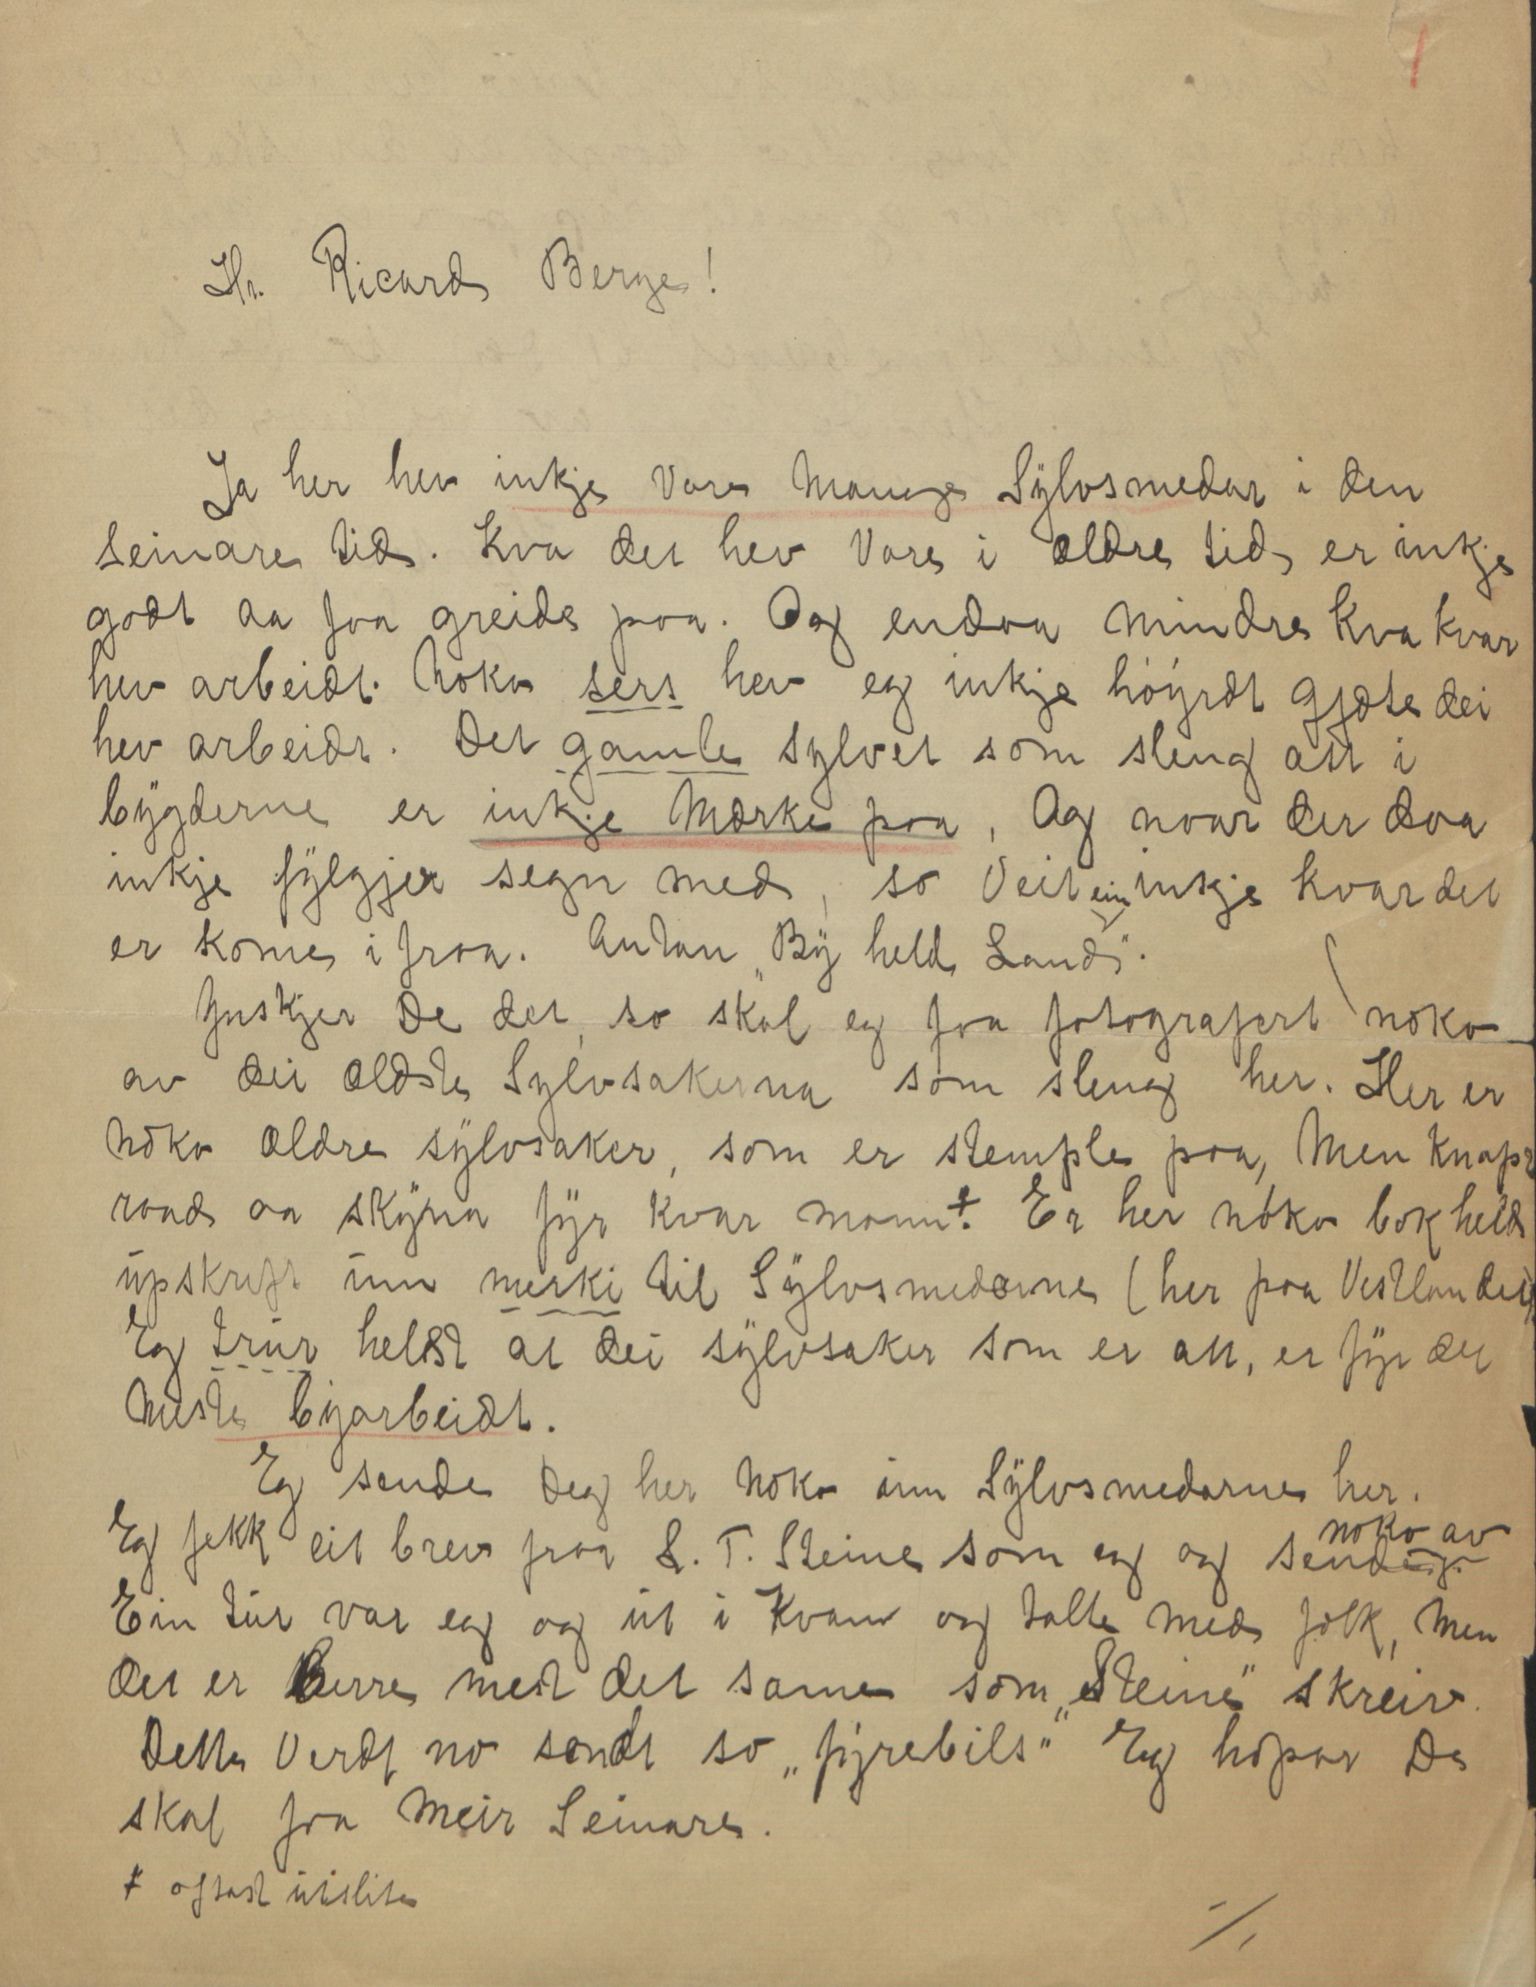 Hr. Ricard Berge!
Ja her hev inkje vore mange Sylvsmedar i den
seinare tid. Kva det hev vore i ældre tid, er inkje
godt aa faa greide paa. Og endaa mindre kva kvar
hev arbeidt. Noko sers hev eg inkje höyrdt gjæte dei
hev arbeidt. Det gamle sylvet som sleng att i
bygderne er inkje Mærke paa, Og naar der daa
inkje fylgjer segn med, so veit ein inkje kvar det
er kome ifraa. Antan „By held Land".
Ynskjer De det, so skal eg faa fotografert noko
av dei ældste Sylvsakerna som sleng her. Her er
noko ældre sylvsaker, som er stemple paa, men knapt
raad aa skyna fyr kvar mann +. Er her noko bok held
upskrift um merki til Sylvsmedarne (her paa Vestlandet)
Eg trur helst at dei sylvsaker som er att, er fyr det
meste byarbeidt.
Eg sende Deg her noko um Sylvsmedarne her.
Eg fekk eit brev fraa L. T. Steine som eg og sende noko av
Ein tur var eg og ut i Kvam og talte med folk, men
det er berre mest det same som „Steine" skreiv.
Dette verdt no sendt so „fyrebils" Eg hopar De
skal faa meir Seinare.
+ oftast utslite
./.